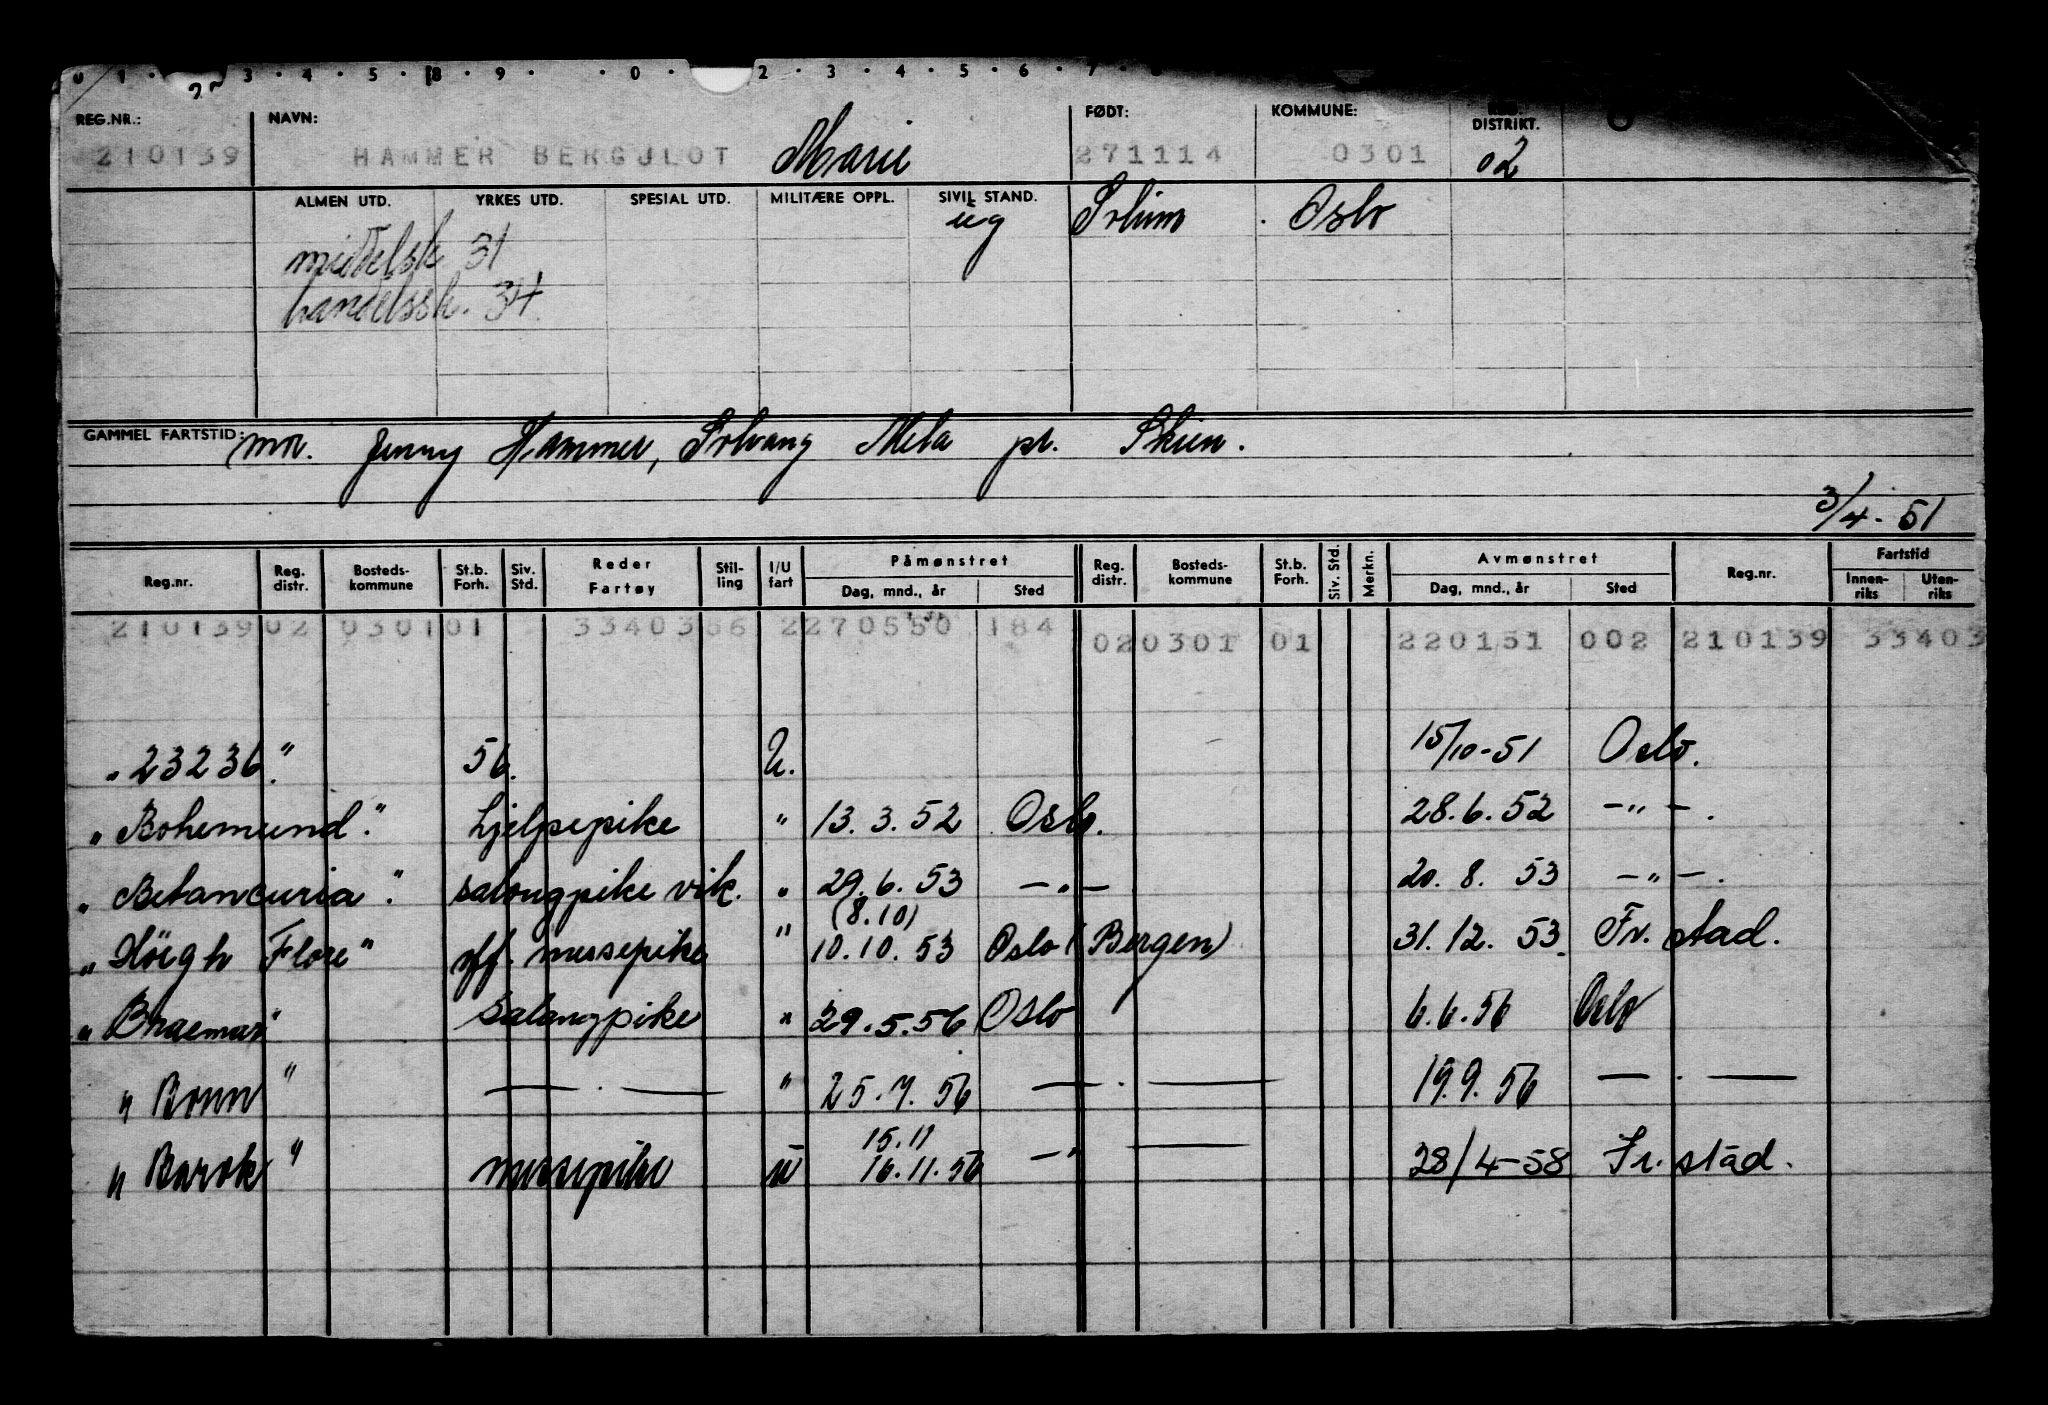 0 1 · 2 3 · 4 · 5 · 8 · 9 · · 0 · 2 · 3 · 4 · 5 · 6 · 7 ·
REG.NR.: NAVN: FØDT: KOMMUNE: DISTRIKT.
210139 HAMMER BERGJLOT Marie 271114 0301 02
ALMEN UTD. YRKES UTD. SPESIAL UTD. MILITÆRE OPPL. SIVIL STAND.
ug Solum Oslo
middelsk 31
handelssk. 34.
GAMMEL FARTSTID: mor. Jenny Hammer, Solvang Mela pr. Skien.
3/4-51
Reg.nr. Reg. distr. Bosteds-kommune St.b. Forh. Siv. Std. Reder Fartøy Stil-ling I/U fart Påmønstret Dag, mnd., år Sted Reg. distr. Bosteds-kommune St.b. Forh. Siv. Std. Merkn. Avmønstret Dag, mnd., år Sted Reg.nr. Fartstid Innen-riks Uten-riks
210139 02 0301 01 33403 56 2 270550 184 02 0301 01 220151 002 210139 33403
"23236" 56. U. 15/10-51 Oslo.
"Bohemund" hjelpepike " 13.3.52 Oslo. 28.6.52 -"-.
"Betancuria" salongpike vik. " 29.6.53 -"- 20.8.53 -"-.
(8.10)
"Höegh Flore" off. messepike " 10.10.53 Oslo (Bergen) 31.12.53. Fr.stad.
"Braemar" Salongpike " 29.5.56 Oslo 6.6.56 Oslo
"Bonn" — . — " 25.7.56 — . — 19.9.56 — . —
15.11
"Barok" messepike u 16.11.56 -"- 28/4-58 Fr.stad.